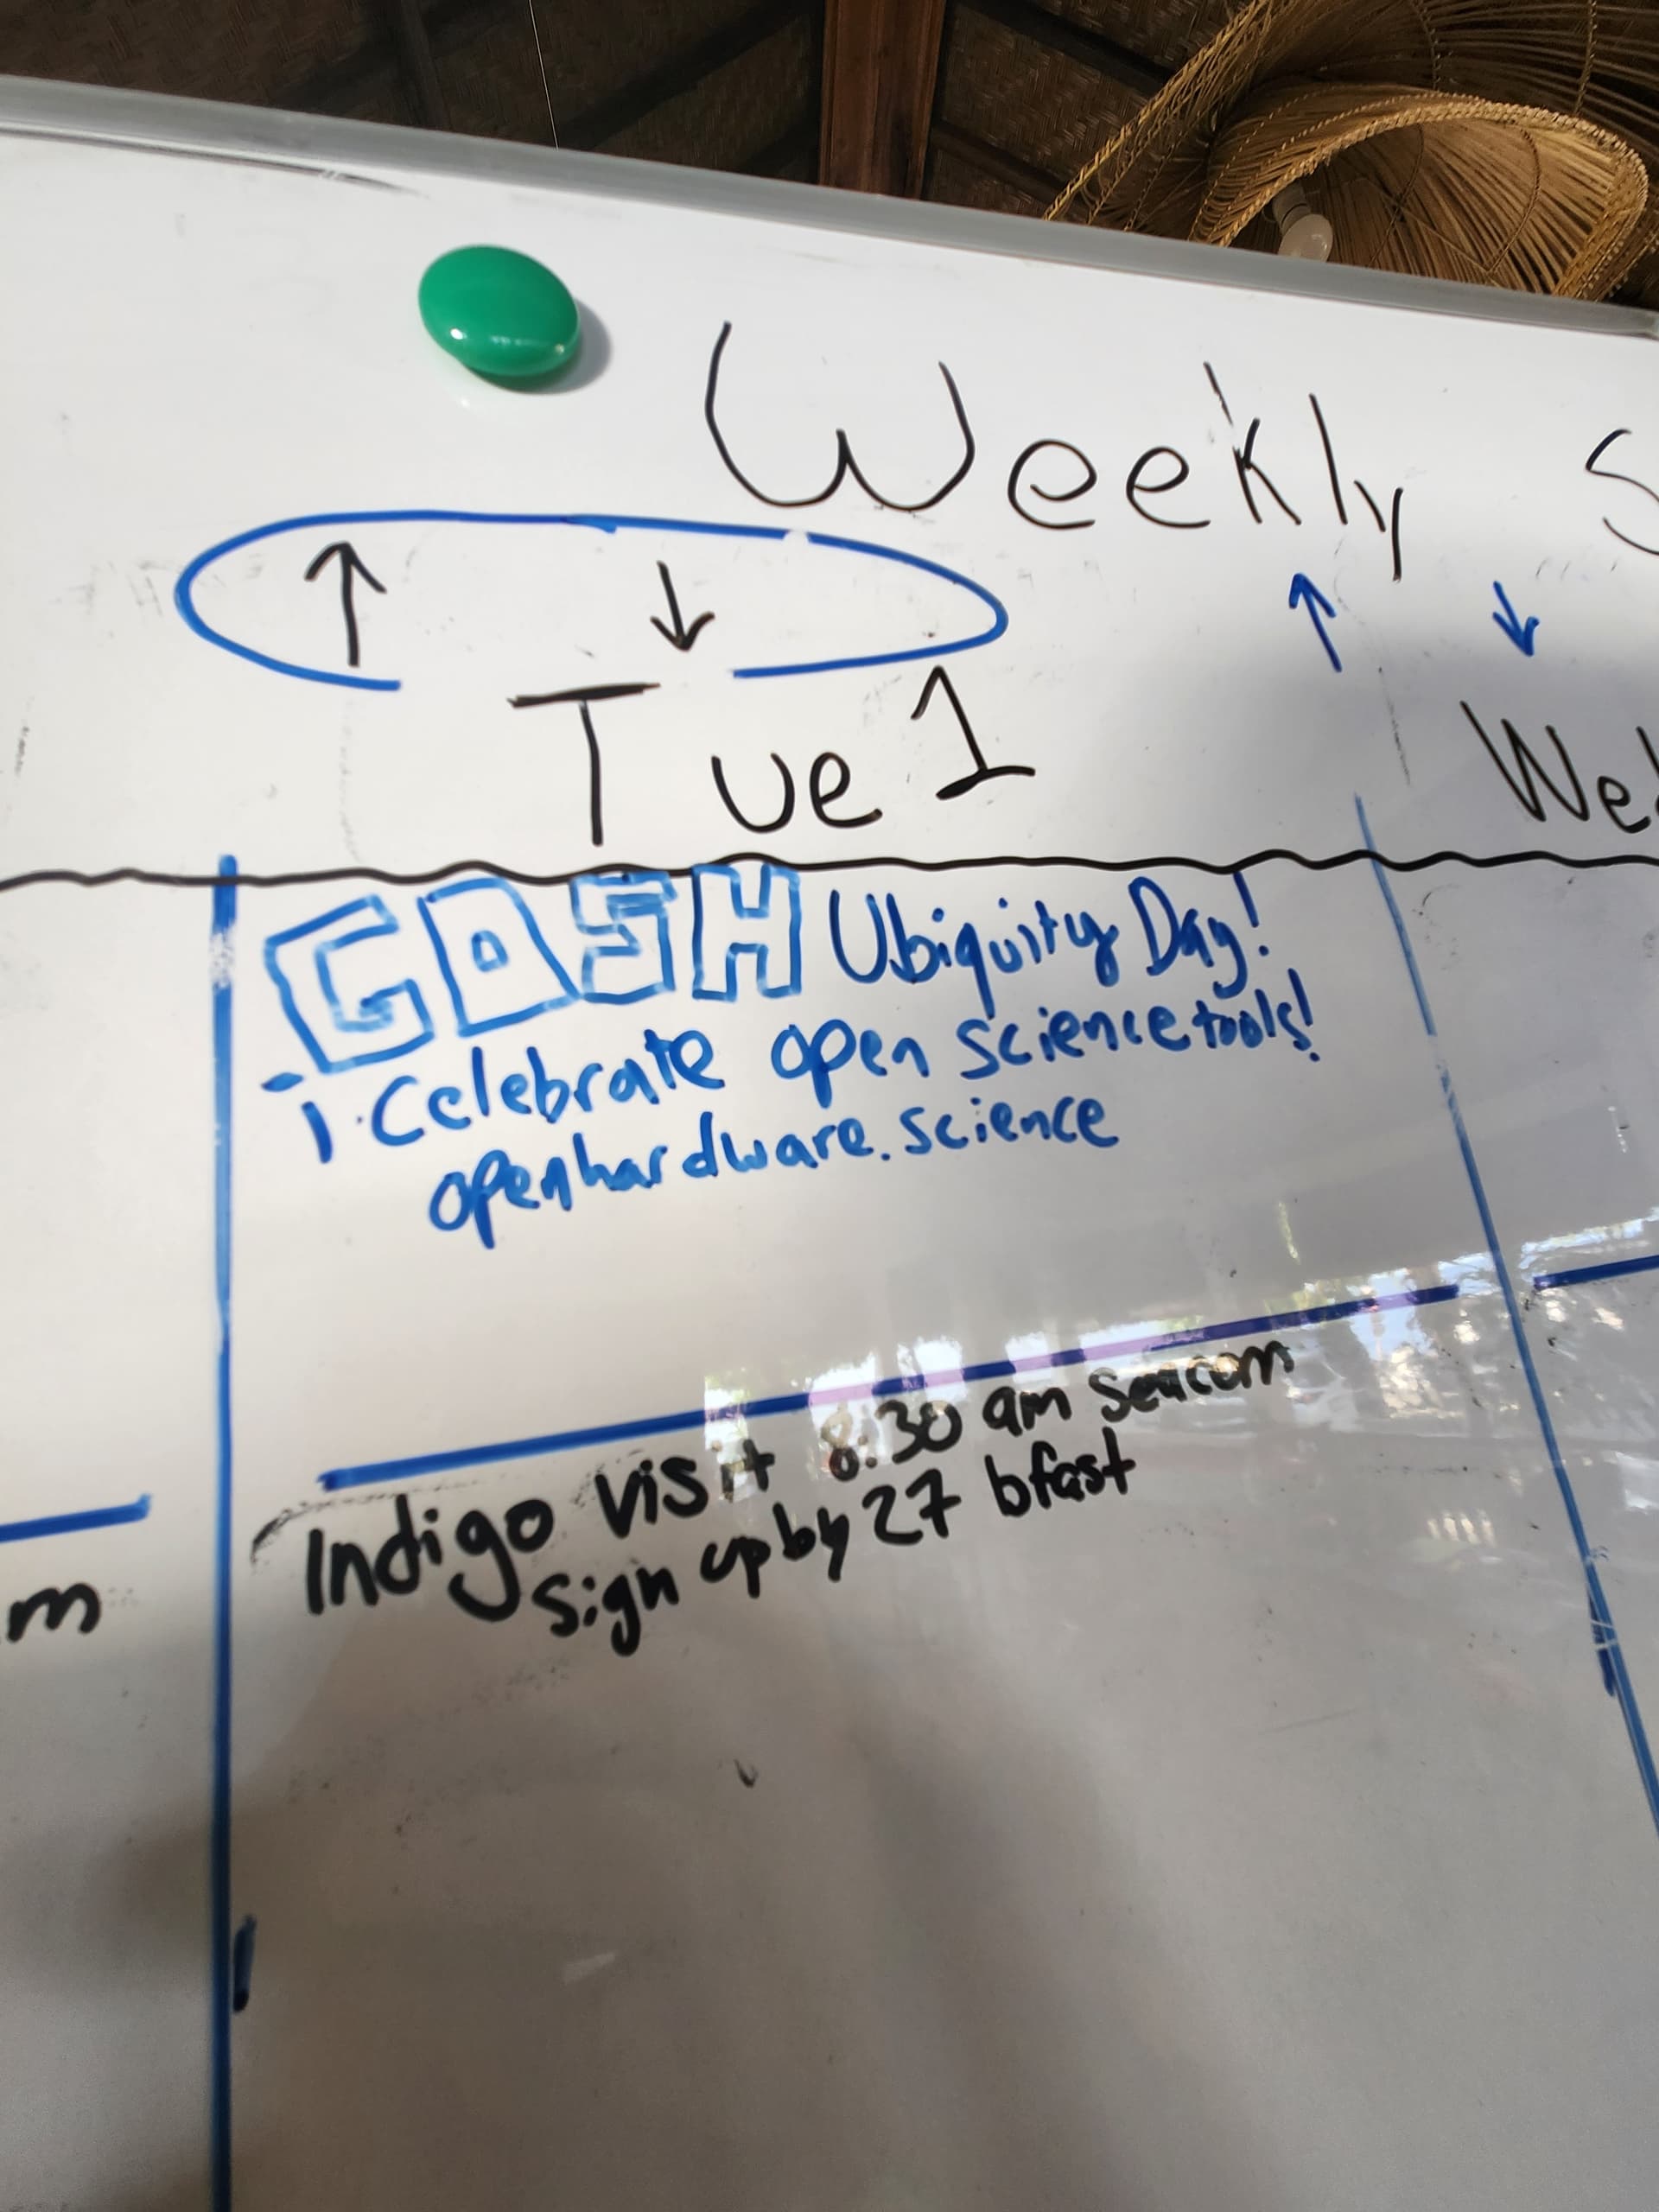 Weekly S
↑ ↓ ↑ ↓
Tue 1
Wed
GOSH Ubiquity Day!
¡Celebrate open science tools!
openhardware.science
Indigo visit 8:30 am seacom
sign up by 27 bfast
m